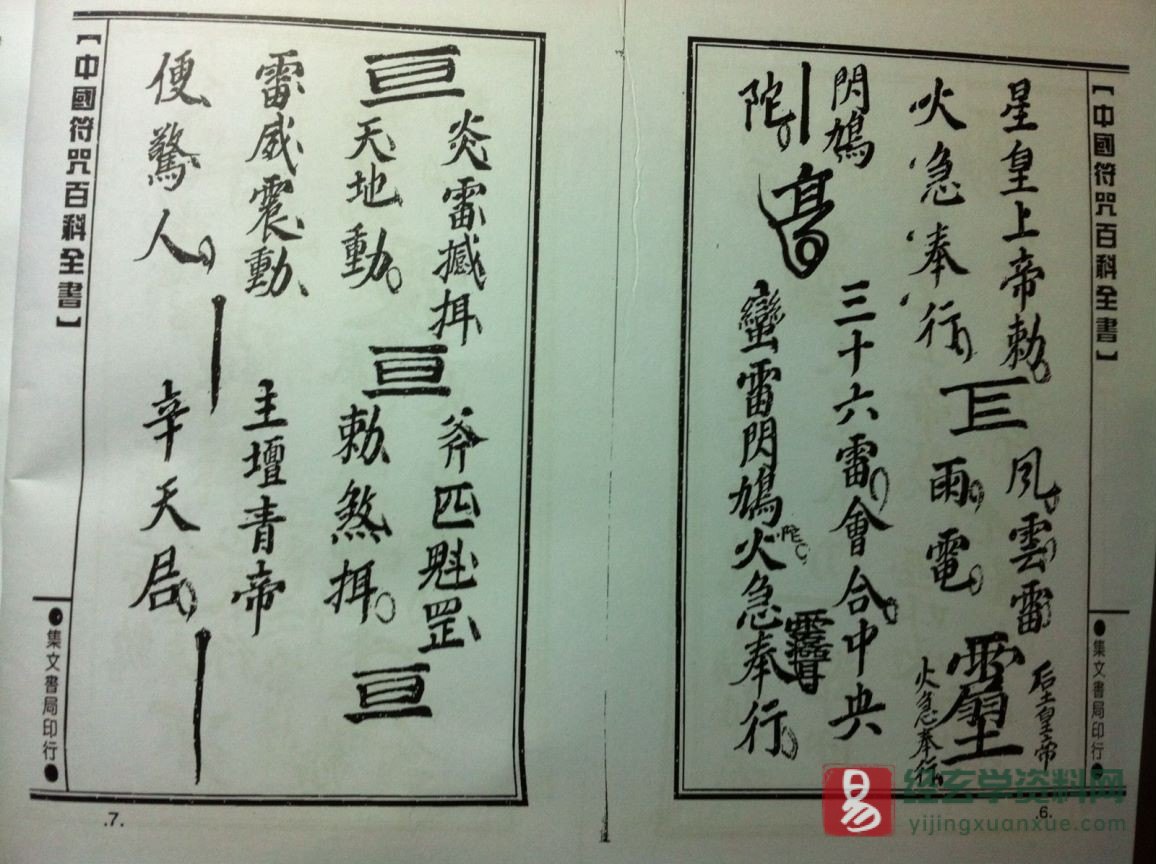 【中國符咒百科全書】
●集文書局印行●
星皇上帝勅。
火急奉行。
風。雲。雷
雨。電。
后土皇帝
火急奉行
閃鳩
三十六雷。會合。中央
陀。
蠻雷閃鳩陀。火急奉行。
.6.
炎雷撼挕
斧匹魁罡
天地動。
勅煞挕。
雷威震動
主壇青帝
便驚人。
辛天局。
【中國符咒百科全書】
●集文書局印行●
.7.
易
经玄学资料网
yijingxuanxue.com